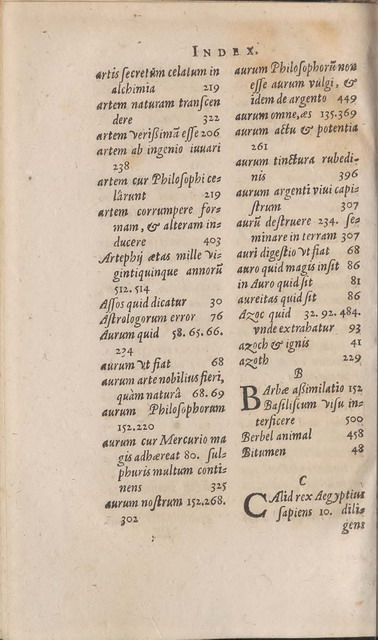 INDEX.
artis secretũm celatum in
alchimia 219
artem naturam transcen
dere 322
artem verißimã esse 206
artem ab ingenio iuuari
238
artem cur Philosophi ce-
lârunt 219
artem corrumpere for-
mam, & alteram in-
ducere 403
Artephij ætas mille vi-
gintiquinque annorũ
512.514
Assos quid dicatur 30
Astrologorum error 76
Aurum quid 58.65.66.
234
aurum vt fiat 68
aurum arte nobilius fieri,
quàm naturâ 68.69
aurum Philosophorum
152.220
aurum cur Mercurio ma
gis adhæreat 80. sul-
phuris multum conti-
nens 325
aurum nostrum 152.268.
302
aurum Philosophorũ non
esse aurum vulgi, &
idem de argento 449
aurum omne, æs 135.369
aurum actu & potentia
261
aurum tinctura rubedi-
nis 396
aurum argenti viui capi-
strum 307
aurũ destruere 234. se-
minare in terram 307
auri digestio vt fiat 68
auro quid magis insit 86
in Auro quid sit 81
aureitas quid sit 86
Azoc quid 32.92.484.
vnde extrahatur 93
azoch & ignis 41
azoth 229
B
BArbæ aßimilatio 152
Basiliscum visu in-
terficere 500
Berbel animal 458
Bitumen 48
C
CAlid rex Aegyptius
sapiens 10. dili-
gens